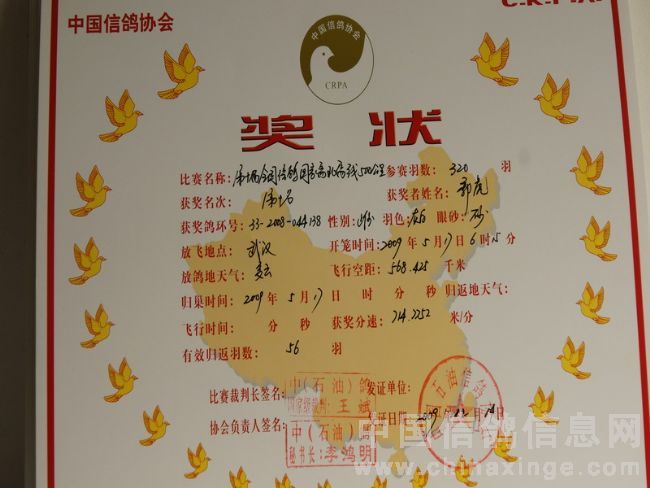 中国信鸽协会
C.R.P.A.
中国信鸽协会
CRPA
奖 状
比赛名称： 全国信鸽国家赛 500公里 参赛羽数： 320 羽
获奖名次： 获奖者姓名： 郭虎
获奖鸽环号： 33-2008-044138 性别： 羽色： 眼砂： 砂
放飞地点： 武汉 开笼时间： 2009 年 5 月 17 日 6 时 15 分
放鸽地天气： 多云 飞行空距： 568.425 千米
归巢时间： 2009 年 5 月 17 日 时 分 秒 归返地天气：
飞行时间： 分 秒 获奖分速： 714.2252 米/分
有效归返羽数： 56 羽
比赛裁判长签名： 中（石油）鸽 国家级裁判：王斌 发证单位：
协会负责人签名： 中（石油）鸽 秘书长：李鸿明 发证日期： 2009
石油信鸽
中国信鸽信息网
www.chinaxinge.com